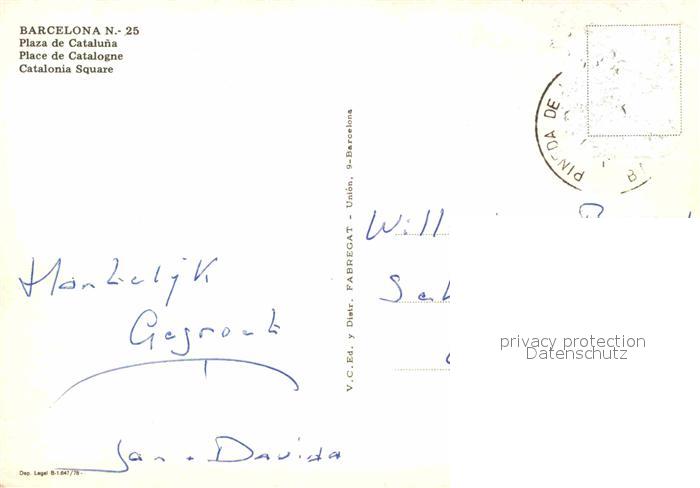 BARCELONA N.- 25
Plaza de Cataluña
Place de Catalogne
Catalonia Square
PINEDA DE
V.C. Ed. y Distr. FABREGAT - Unión, 9-Barcelona
Hartelijk
Gegroet
Jan + Davida
Will
privacy protection
Datenschutz
Dep. Legal B-1.647/76 -